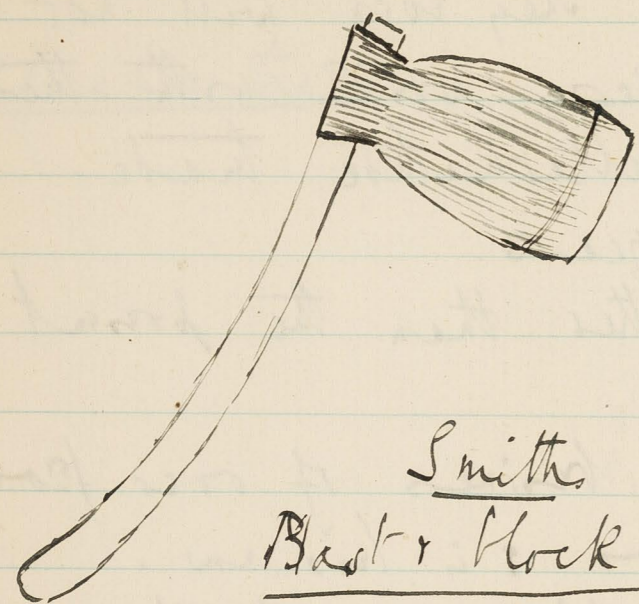 Smiths
Bast & block